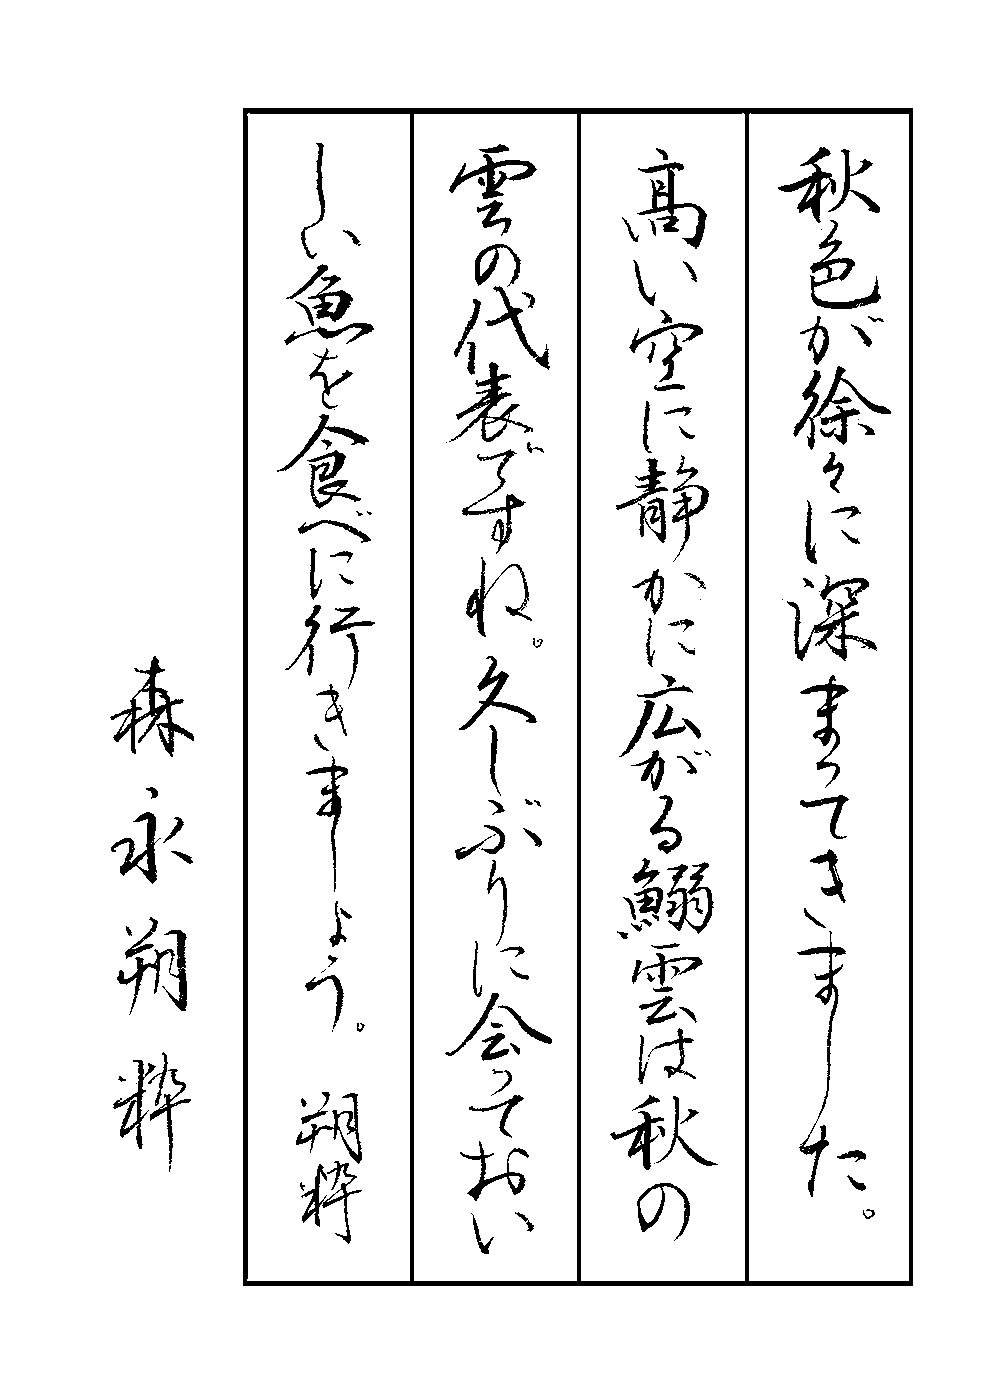 秋色が徐々に深まってきました。
高い空に静かに広がる鰯雲は秋の
雲の代表ですね。久しぶりに会っておい
しい魚を食べに行きましょう。 朔粋
森永朔粋